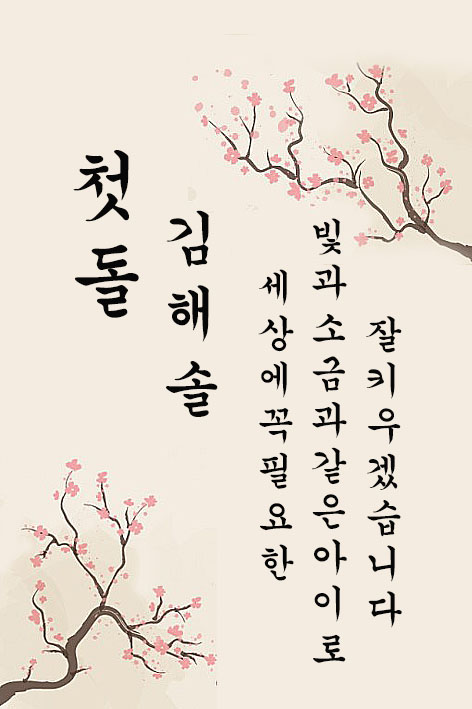 첫돌
김해솔
세상에꼭필요한
빛과소금과같은아이로
잘키우겠습니다